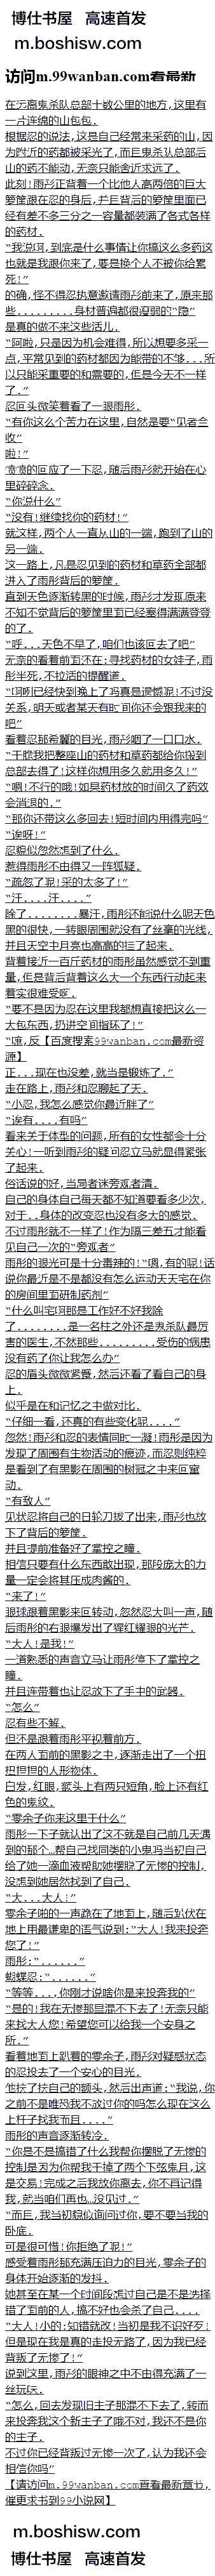 博仕书屋 高速首发
m.boshisw.com
访问m.99wanban.com看最新
在远离鬼杀队总部十数公里的地方,这里有
一片连绵的山包包.
根据忍的说法,这是自己经常来采药的山,因
为附近的药都被采光了,而且鬼杀队总部后
山的药不能动,无奈只能舍近求远了.
此刻!雨彤正背着一个比他人高两倍的巨大
箩筐跟在忍的身后,并且背后的箩筐里面已
经有差不多三分之一容量都装满了各式各样
的药材.
“我说啊,到底是什么事情让你搞这么多药这
也就是我跟你来了,要是换个人不被你给累
死!”
的确,怪不得忍执意邀请雨彤前来了,原来那
些.........身材普遍都很瘦弱的“隐”
是真的做不来这些活儿.
“阿啦,只是因为机会难得,所以想要多采一
点,平常见到的药材都因为能带的不够...所
以只能采重要的和需要的,但是今天不一样
了.”
忍回头微笑着看了一眼雨彤.
“有你这么个苦力在这里,自然是要“见者全
收”
啦!”
愤愤的回应了一下忍,随后雨彤就开始在心
里碎碎念.
“你说什么”
“没有!继续找你的药材!”
就这样,两个人一直从山的一端,跑到了山的
另一端.
这一路上,凡是忍见到的药材和草药全部都
进入了雨彤背后的箩筐.
直到天色逐渐转黑的时候,雨彤才发现原来
不知不觉背后的箩筐里面已经塞得满满登登
的了.
“呼...天色不早了,咱们也该回去了吧”
无奈的看着前面还在:寻找药材的女娃子,雨
彤半死,不拉活的提醒道.
“啊啊已经快到晚上了吗真是遗憾呢!不过没
关系,明天或者某天有时间你还会跟我来的
吧”
看着忍那希冀的目光,雨彤咽了一口口水.
“干脆我把整座山的药材和草药都给你搬到
总部去得了!这样你想用多久就用多久!”
“嗯!不行的哦!如果药材放的时间久了药效
会消退的.”
“那你还带这么多回去!短时间内用得完吗”
“诶呀!”
忍貌似忽然想到了什么.
惹得雨彤不由得又一阵狐疑.
“疏忽了呢!采的太多了!”
“汗....汗....”
除了........暴汗,雨彤还能说什么呢天色
黑的很快,一转眼周围就没有了丝毫的光线,
并且天空中月亮也高高的挂了起来.
背着接近一百斤药材的雨彤虽然感觉不到重
量,但是背后背着这么大一个东西行动起来
着实很难受啊.
“要不是因为忍在这里我都想直接把这么一
大包东西,扔进空间指环了!”
“嘛,反【百度搜索99wanban.com最新资
源】
正...现在也没差,就当是锻炼了.”
走在路上,雨彤和忍聊起了天.
“小忍,我怎么感觉你最近胖了”
“诶有....有吗”
看来关于体型的问题,所有的女性都会十分
关心!一听到雨彤的疑问忍立马就显得紧张
了起来.
俗话说的好,当局者迷旁观者清.
自己的身体自己每天都不知道要看多少次,
对于..身体的改变忍也没有多大的感觉.
不过雨彤就不一样了!作为隔三差五才能看
见自己一次的“旁观者”
雨彤的眼光可是十分毒辣的!“嗯,有的呢!话
说你最近是不是都没有怎么运动天天宅在你
的房间里面研制药剂”
“什么叫宅啊那是工作好不好我除
了........是一名柱之外还是鬼杀队最厉
害的医生,不然那些.........受伤的病患
没有药了你让我怎么办”
忍的眉头微微紧蹙,然后还看了看自己的身
上.
似乎是在和记忆之中做对比.
“仔细一看,还真的有些变化呢....”
忽然!雨彤和忍的表情同时一凝!雨彤是因为
发现了周围有生物活动的痕迹,而忍则纯粹
是看到了有黑影在周围的树冠之中来回窜
动.
“有敌人”
见状忍将自己的日轮刀拔了出来,雨彤也放
下了背后的箩筐.
并且提前准备好了掌控之瞳.
相信只要有什么东西敢出现,那股庞大的力
量一定会将其压成肉酱的.
“来了!”
眼球跟着黑影来回转动,忽然忍大叫一声,随
后雨彤的右眼爆发出了猩红耀眼的光芒.
“大人!是我!”
一道熟悉的声音立马让雨彤停下了掌控之
瞳.
并且连带着也让忍放下了手中的武器.
“怎么”
忍有些不解.
但还是跟着雨彤平视着前方.
在两人面前的黑影之中,逐渐走出了一个扭
扭捏捏的人形物体.
白发,红眼,额头上有两只短角,脸上还有红
色的鬼纹.
“零余子你来这里干什么”
雨彤一下子就认出了这不就是自己前几天遇
到的那个…帮自己找同类的小鬼吗当初自己
给了她一滴血液帮助她摆脱了无惨的控制,
没想到她居然找到了自己.
“大...大人!”
零余子啪的一声跪在了地面上,随后趴伏在
地上用最谦卑的语气说到:“大人!我来投奔
您了!”
雨彤:“......”
蝴蝶忍:“......”
“等等...,你刚才说啥你是来投奔我的”
“是的!我在无惨那里混不下去了!无奈只能
来找大人您!希望您可以给我一个安身之
所.”
看着地面上趴着的零余子,雨彤对疑惑状态
的忍投去了一个安心的目光.
他扶了扶自己的额头,然后出声道:“我说,你
之前不是唯恐我不放过你的吗怎么现在这么
上杆子找我而且....”
雨彤的声音逐渐转冷.
“你是不是搞错了什么我帮你摆脱了无惨的
控制是因为你帮我干掉了两个下弦鬼月,这
是交易!完成之后我放你离去,你不再记得
我,就当咱们再也…没见过.”
“而且,我当初貌似询问过你,要不要当我的
卧底.
可是很可惜!你拒绝了呢!”
感受着雨彤那充满压迫力的目光,零余子的
身体开始逐渐的发抖.
她甚至在某一个时间段想过自己是不是选择
错了面前的人,搞不好也会杀了自己....
“大人!小的:知错就改!当初是我不识好歹!
但是现在我是真的走投无路了,因为我已经
背叛了无惨了!”
说到这里,雨彤的眼神之中不由得充满了一
丝玩味.
“怎么,回去发现旧主子那混不下去了,转而
来投奔我这个新主子了哦不对,我还不是你
的主子.
不过你已经背叛过无惨一次了,认为我还会
相信你吗”
【请访问m.99wanban.com查看最新章节,
催更求书到99小说网】
m.boshisw.com
博仕书屋 高速首发